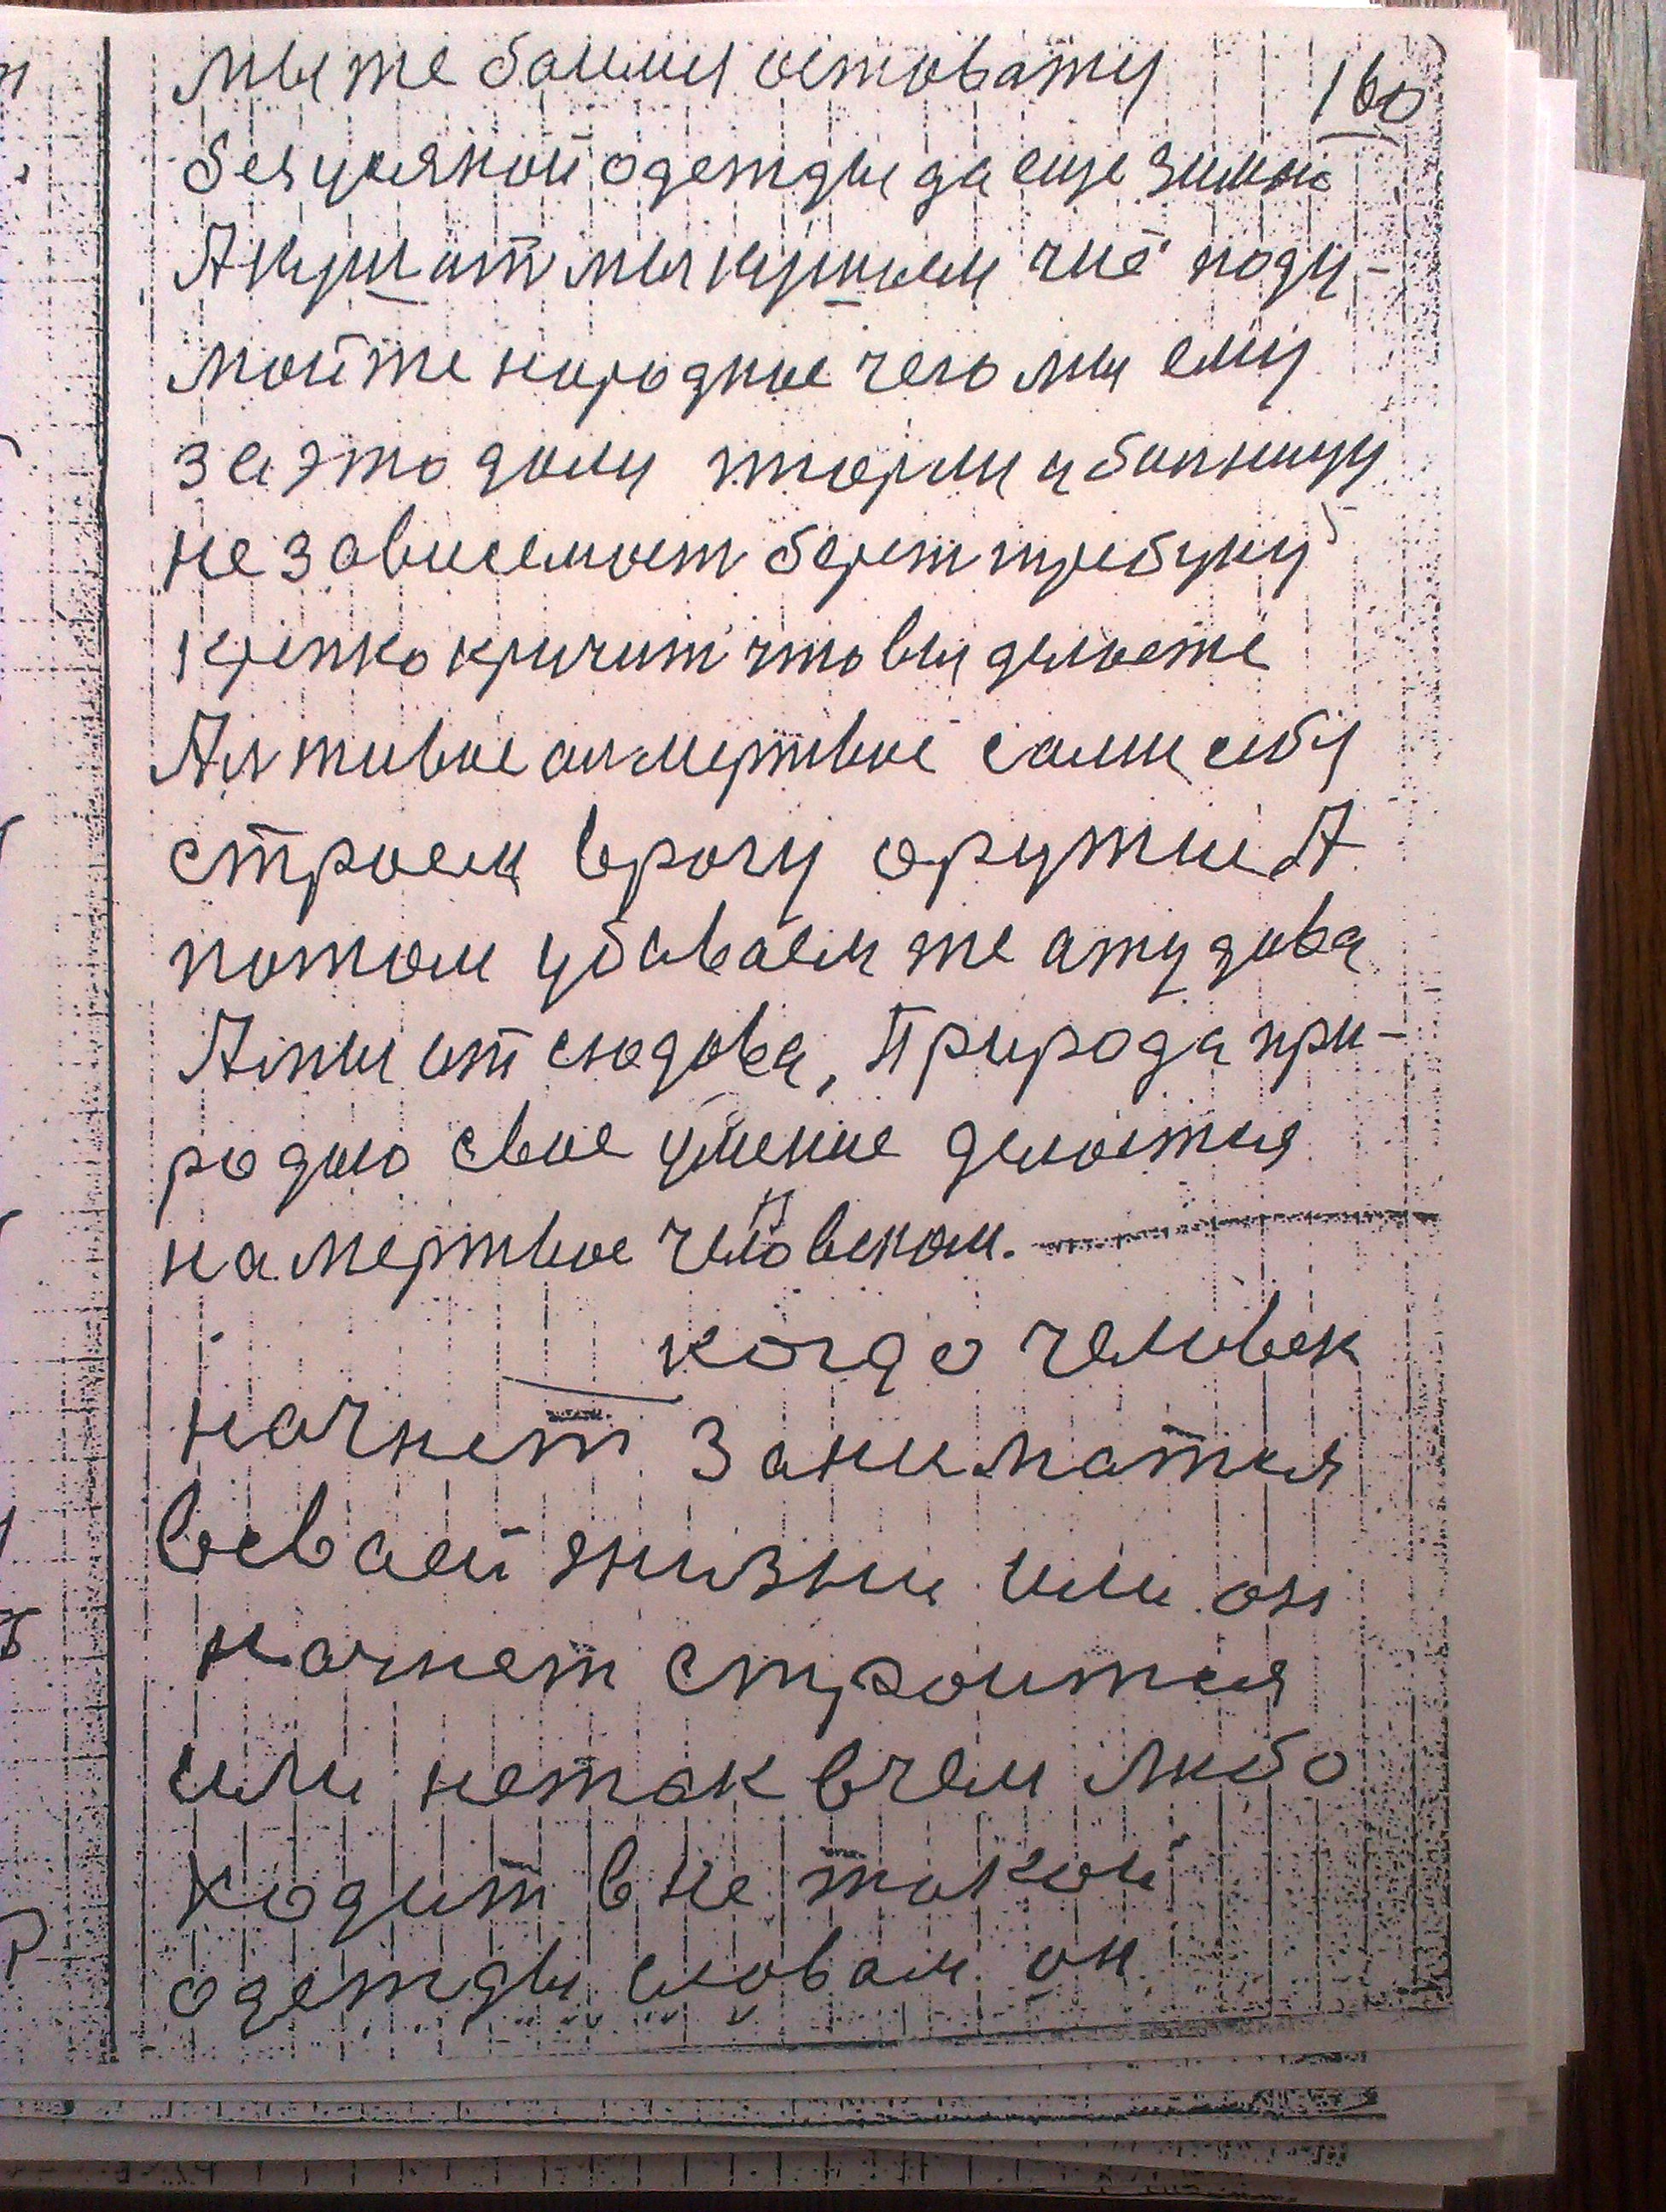 мыже боимся оставатц 160
без усякой одежды да еще зимою
А кушат мы кушаем чиё поду-
майте народнае чего мы ему
за это дали тюрму и бонницу
не зависемост берет требуху
крепко кричит что вы делаете
Ал живое ал мертвое сами себе
строем врогу оружие А
потом убиваем же оттудова
А мы отсюдова, Природа при-
родаю свое умение делается
на мертвое человеком.
когдо человек
начнет Заниматся
всваей жизни или он
начнет строится
или нетак вчем либо
ходит в не такой
одежды словам он